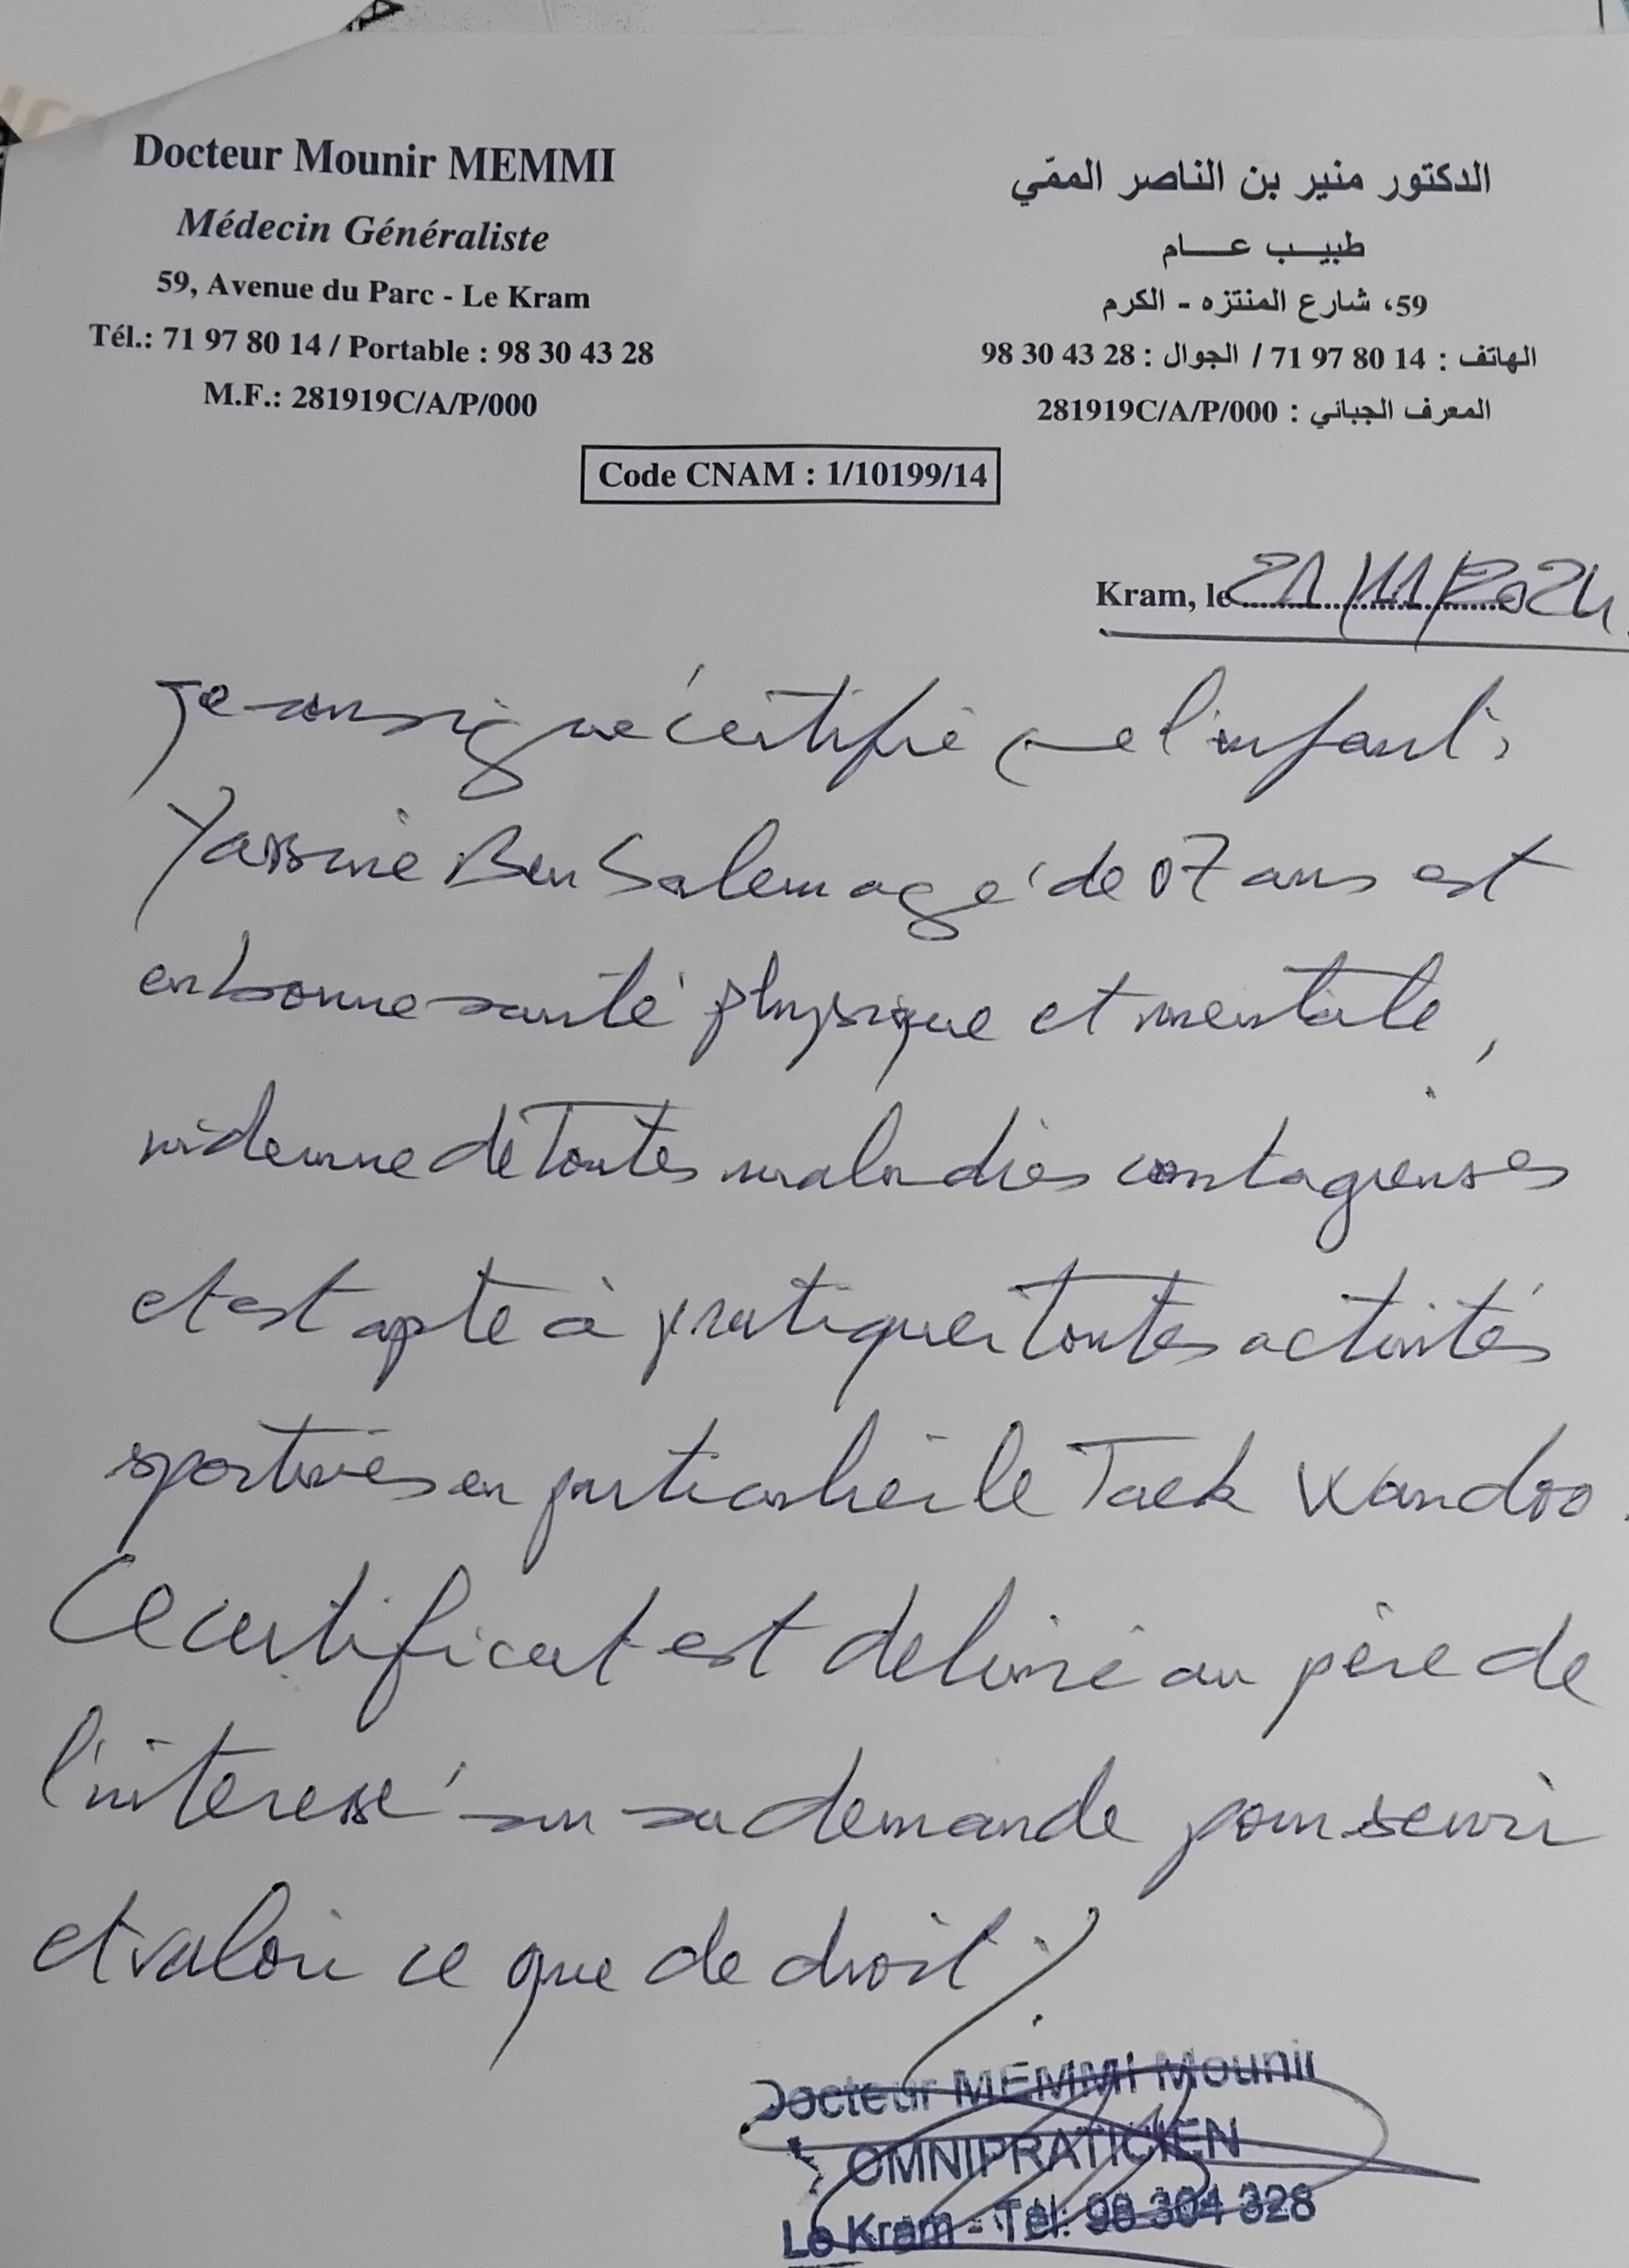 Docteur Mounir MEMMI
Médecin Généraliste
59, Avenue du Parc - Le Kram
Tél.: 71 97 80 14 / Portable : 98 30 43 28
M.F.: 281919C/A/P/000
الدكتور منير بن الناصر الممّي
طبيب عام
59، شارع المنتزه - الكرم
الهاتف : 71 97 80 14 / الجوال : 98 30 43 28
المعرف الجبائي : 281919C/A/P/000
Code CNAM : 1/10199/14
Kram, le 21/11/2024
Je soussigné certifie que l'enfant :
Yassine Ben Salem agé de 07 ans est
en bonne santé physique et mentale,
indemne de toutes maladies contagieuses
et est apte à pratiquer toutes activités
sportives en particulier le Taek Wandoo.
Ce certificat est délivré au père de
l'interessé sur sa demande pour servir
et valoir ce que de droit ./.
Docteur MEMMI Mounir
OMNIPRATICIEN
Le Kram - Tél: 98 304 328